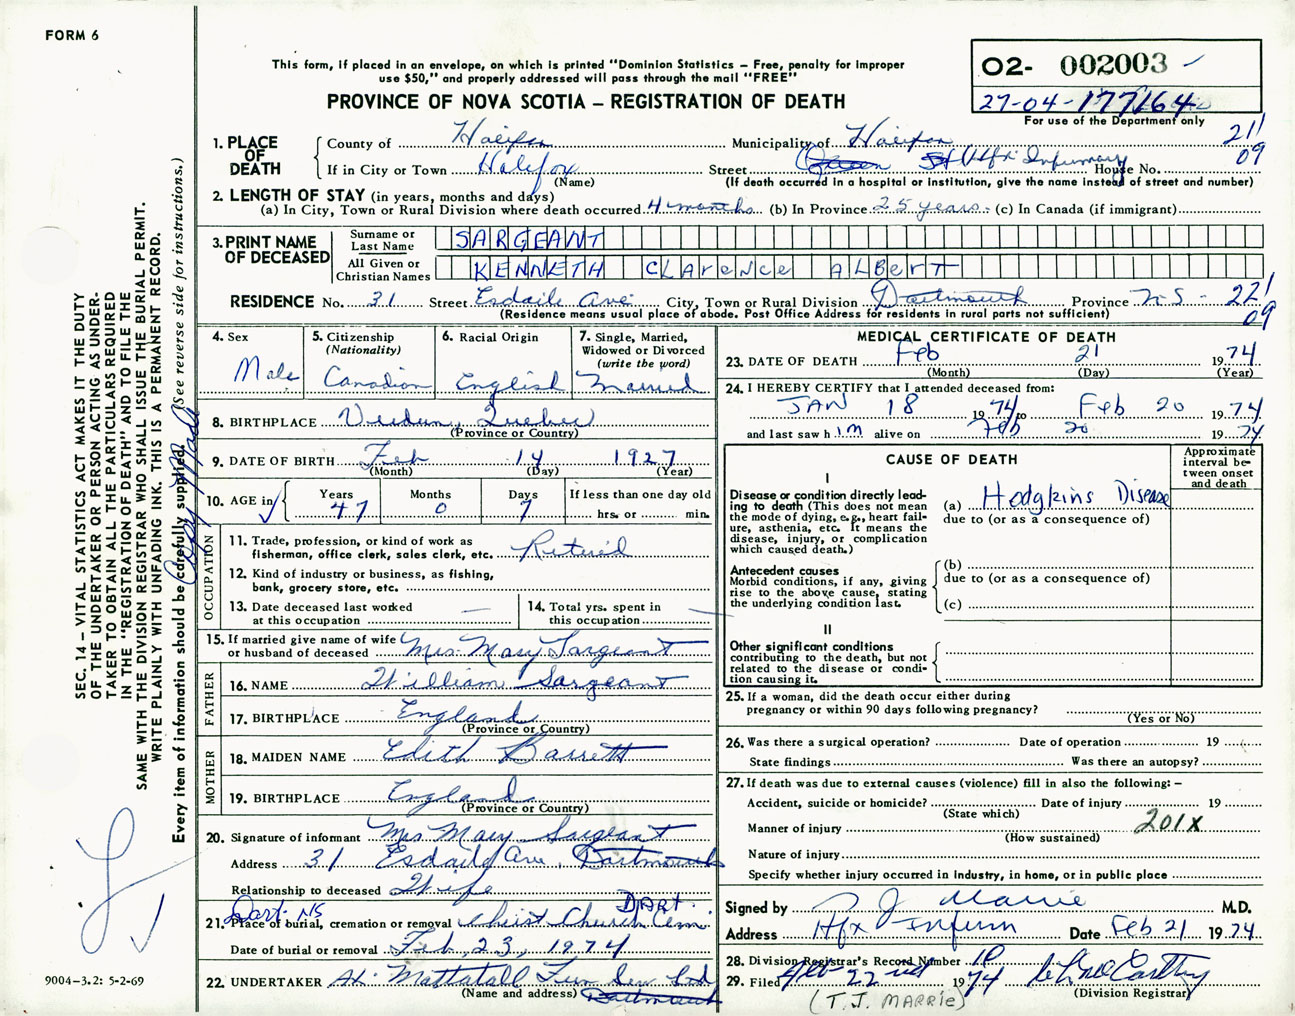 FORM 6
This form, if placed in an envelope, on which is printed "Dominion Statistics – Free, penalty for improper
use $50," and properly addressed will pass through the mail "FREE"
PROVINCE OF NOVA SCOTIA – REGISTRATION OF DEATH
02- 002003
27-04-177164
For use of the Department only
211
09
1. PLACE OF DEATH
County of Halifax Municipality of Halifax
If in City or Town Halifax Street Queen St Hfx Infirmary House No.
(Name) (If death occurred in a hospital or institution, give the name instead of street and number)
2. LENGTH OF STAY (in years, months and days)
(a) In City, Town or Rural Division where death occurred 4 months (b) In Province 25 years (c) In Canada (if immigrant)
3. PRINT NAME OF DECEASED
Surname or Last Name SARGEANT
All Given or Christian Names KENNETH CLARENCE ALBERT
RESIDENCE No. 31 Street Esdaile Ave City, Town or Rural Division Dartmouth Province N.S.
221
09
(Residence means usual place of abode. Post Office Address for residents in rural parts not sufficient)
4. Sex
Male
5. Citizenship
(Nationality)
Canadian
6. Racial Origin
English
7. Single, Married,
Widowed or Divorced
(write the word)
Married
8. BIRTHPLACE Verdun, Quebec
(Province or Country)
9. DATE OF BIRTH Feb 14 1927
(Month) (Day) (Year)
10. AGE in
Years Months Days If less than one day old
47 0 7 hrs. or min.
OCCUPATION
11. Trade, profession, or kind of work as
fisherman, office clerk, sales clerk, etc. Retired
12. Kind of industry or business, as fishing,
bank, grocery store, etc.
13. Date deceased last worked
at this occupation —
14. Total yrs. spent in
this occupation —
15. If married give name of wife
or husband of deceased Mrs. Mary Sargeant
FATHER
16. NAME William Sargeant
17. BIRTHPLACE England
(Province or Country)
MOTHER
18. MAIDEN NAME Edith Barrett
19. BIRTHPLACE England
(Province or Country)
20. Signature of informant Mrs Mary Sargeant
Address 31 Esdaile Ave, Dartmouth
Relationship to deceased Wife
Dart. NS
DART.
21. Place of burial, cremation or removal Christ Church Cem.
Date of burial or removal Feb, 23, 1974
22. UNDERTAKER Mattatall Fun Ser Ltd
(Name and address) Dartmouth
MEDICAL CERTIFICATE OF DEATH
23. DATE OF DEATH Feb 21 1974
(Month) (Day) (Year)
24. I HEREBY CERTIFY that I attended deceased from:
JAN 18 1974 to Feb 20 1974
and last saw him alive on Feb 20 1974
CAUSE OF DEATH
Approximate
interval be-
tween onset
and death
I
Disease or condition directly lead-
ing to death (This does not mean
the mode of dying, e.g., heart fail-
ure, asthenia, etc. It means the
disease, injury, or complication
which caused death.)
(a) Hodgkins Disease
due to (or as a consequence of)
Antecedent causes
Morbid conditions, if any, giving
rise to the above cause, stating
the underlying condition last.
(b)
due to (or as a consequence of)
(c)
II
Other significant conditions
contributing to the death, but not
related to the disease or condi-
tion causing it.
25. If a woman, did the death occur either during
pregnancy or within 90 days following pregnancy?
(Yes or No)
26. Was there a surgical operation? Date of operation 19
State findings Was there an autopsy?
27. If death was due to external causes (violence) fill in also the following: –
Accident, suicide or homicide? Date of injury 19
(State which)
Manner of injury 201X
(How sustained)
Nature of injury
Specify whether injury occurred in industry, in home, or in public place
Signed by Marrie M.D.
Address Hfx Infirm Date Feb 21 1974
28. Division Registrar's Record Number
29. Filed 22nd 1974
(Division Registrar)
(T.J. MARRIE)
SEC. 14 – VITAL STATISTICS ACT MAKES IT THE DUTY
OF THE UNDERTAKER OR PERSON ACTING AS UNDER-
TAKER TO OBTAIN ALL THE PARTICULARS REQUIRED
IN THE "REGISTRATION OF DEATH" AND TO FILE THE
SAME WITH THE DIVISION REGISTRAR WHO SHALL ISSUE THE BURIAL PERMIT.
WRITE PLAINLY WITH UNFADING INK. THIS IS A PERMANENT RECORD.
Every item of information should be carefully supplied. (See reverse side for instructions.)
Copy Made
9004–3.2: 5-2-69